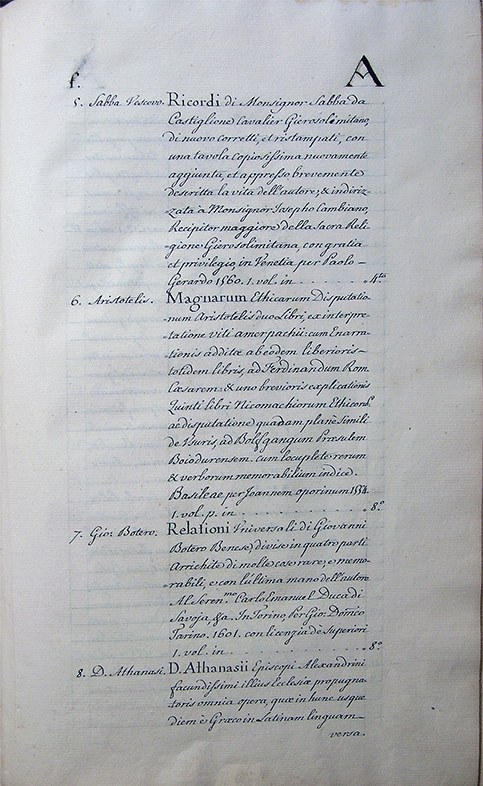 f. A
5. Sabba Vescovo. Ricordi di Monsignor Sabba da
Castiglione Cavalier Gierosolimitano,
di nuovo corretti, et ristampati, con
una tavola copiosissima nuovamente
aggiunta, et appresso brevemente
descritta la vita dell'autore; & indiriz-
zata a Monsignor Josepho Cambiano,
Recipitor maggiore della Sacra Reli-
gione Gierosolimitana, con gratia
et privilegio, in Venetia per Paolo
Gerardo 1560. 1. vol. in . . . . . . 4.to
6. Aristotelis. Magnarum Ethicarum Disputatio-
num Aristotelis duo Libri, ex interpre-
tatione viti amerpachii: cum Enarra-
tionis additæ ab eodem liberioris
totidem libris, ad Ferdinandum Rom.
Cæsarem: & uno brevioris explicationis
Quinti libri Nicomachiorum Ethicor.
ac disputatione quadam plane simili
de Usuris, ad Bolfgangum Præsulem
Boiodurensem. cum locuplete rerum
& verborum memorabilium indice.
Basileae per Joannem oporinum 1554.
1. vol. p. in . . . . . . . . . . 8.o
7. Gio: Botero. Relationi Universali di Giovanni
Botero Benese, divise in quatro parti
Arrichite di molte cose rare; e memo-
rabili, e con l'ultima mano dell'autore
Al Seren.mo Carlo Emanuel Duca di
Savoja, &a. In Torino, Per Gio: Dom.co
Tarino. 1601. con licenzia de Superiori
1. vol. in . . . . . . . . . . . 8.o
8. D. Athanasi. D. Athanasii Episcopi Alexandrini
facundissimi illius Ecclesiæ propugna-
toris omnia opera, quæ in hunc usque
diem è Græco in Latinam linguam
versa.